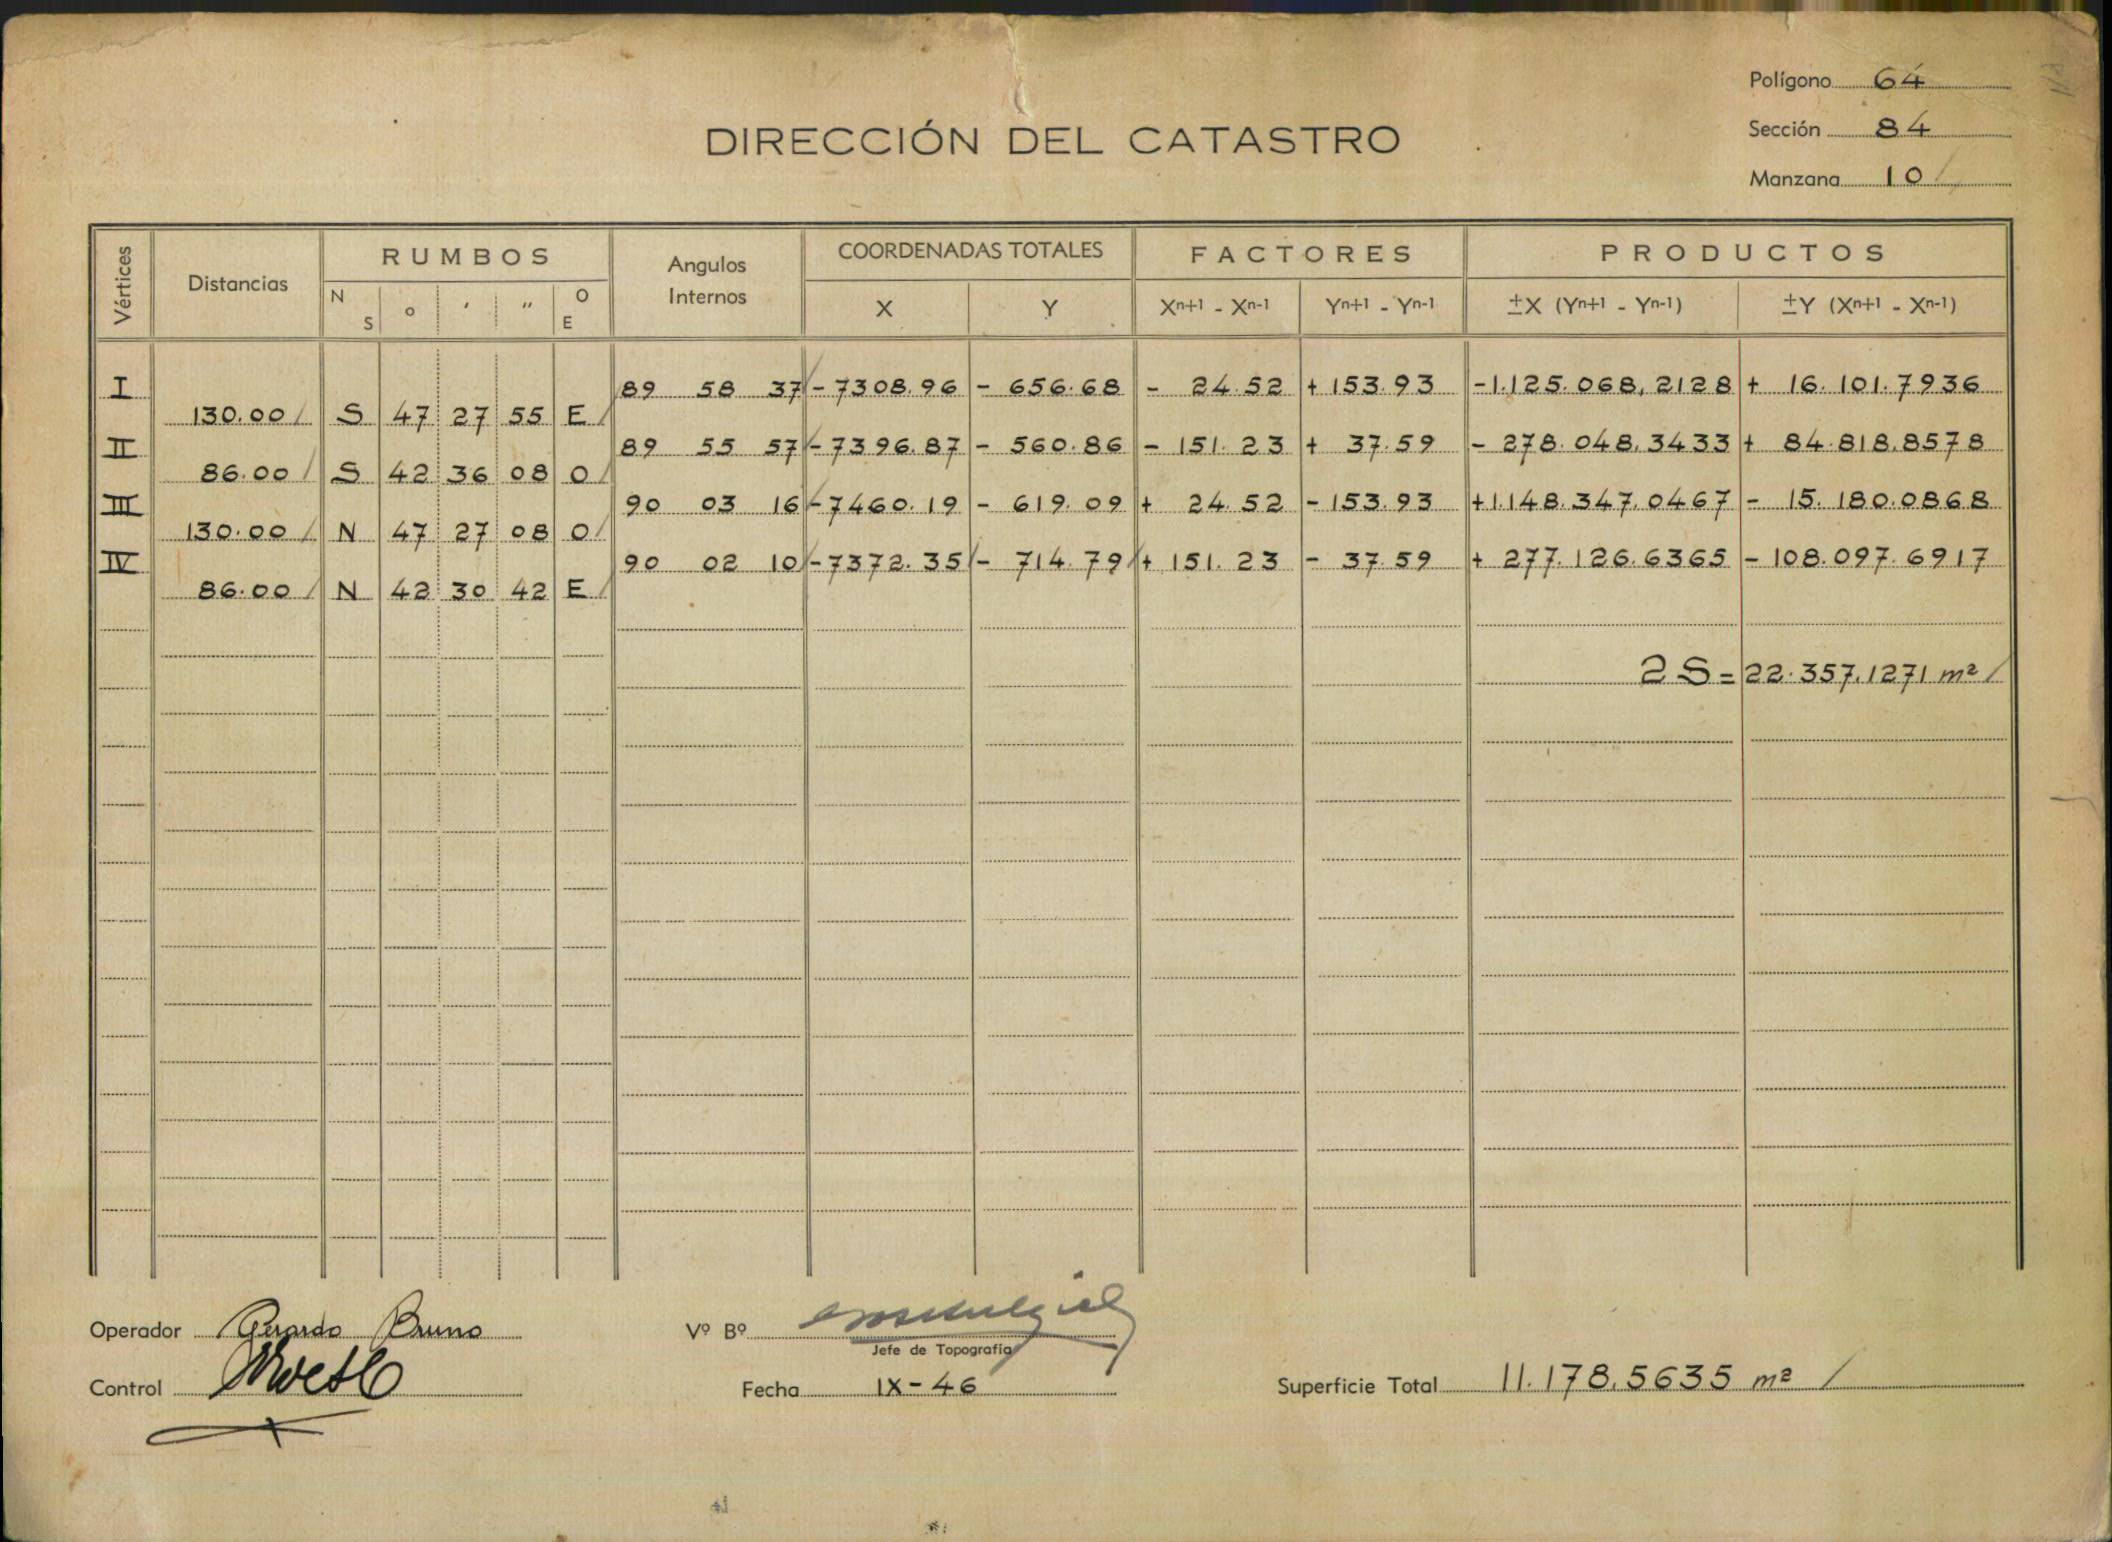 Polígono 64
Sección 84
Manzana 10
DIRECCIÓN DEL CATASTRO
Vértices Distancias RUMBOS Angulos Internos COORDENADAS TOTALES FACTORES PRODUCTOS
N S ° ' " O E X Y Xn+1 - Xn-1 Yn+1 - Yn-1 ±X (Yn+1 - Yn-1) ±Y (Xn+1 - Xn-1)
I 89 58 37 - 7308.96 - 656.68 - 24.52 + 153.93 - 1.125.068,2128 + 16.101.7936
130.00 / S 47 27 55 E /
II 89 55 57 - 7396.87 - 560.86 - 151.23 + 37.59 - 278.048.3433 + 84.818.8578
86.00 / S 42 36 08 O /
III 90 03 16 - 7460.19 - 619.09 + 24.52 - 153.93 + 1.148.347.0467 - 15.180.0868
130.00 / N 47 27 08 O /
IV 90 02 10 - 7372.35 - 714.79 + 151.23 - 37.59 + 277.126.6365 - 108.097.6917
86.00 / N 42 30 42 E /
2 S = 22.357,1271 m² /
Operador Gerardo Bruno
Vº Bº
Jefe de Topografía
Control
Fecha IX-46
Superficie Total 11.178,5635 m² /